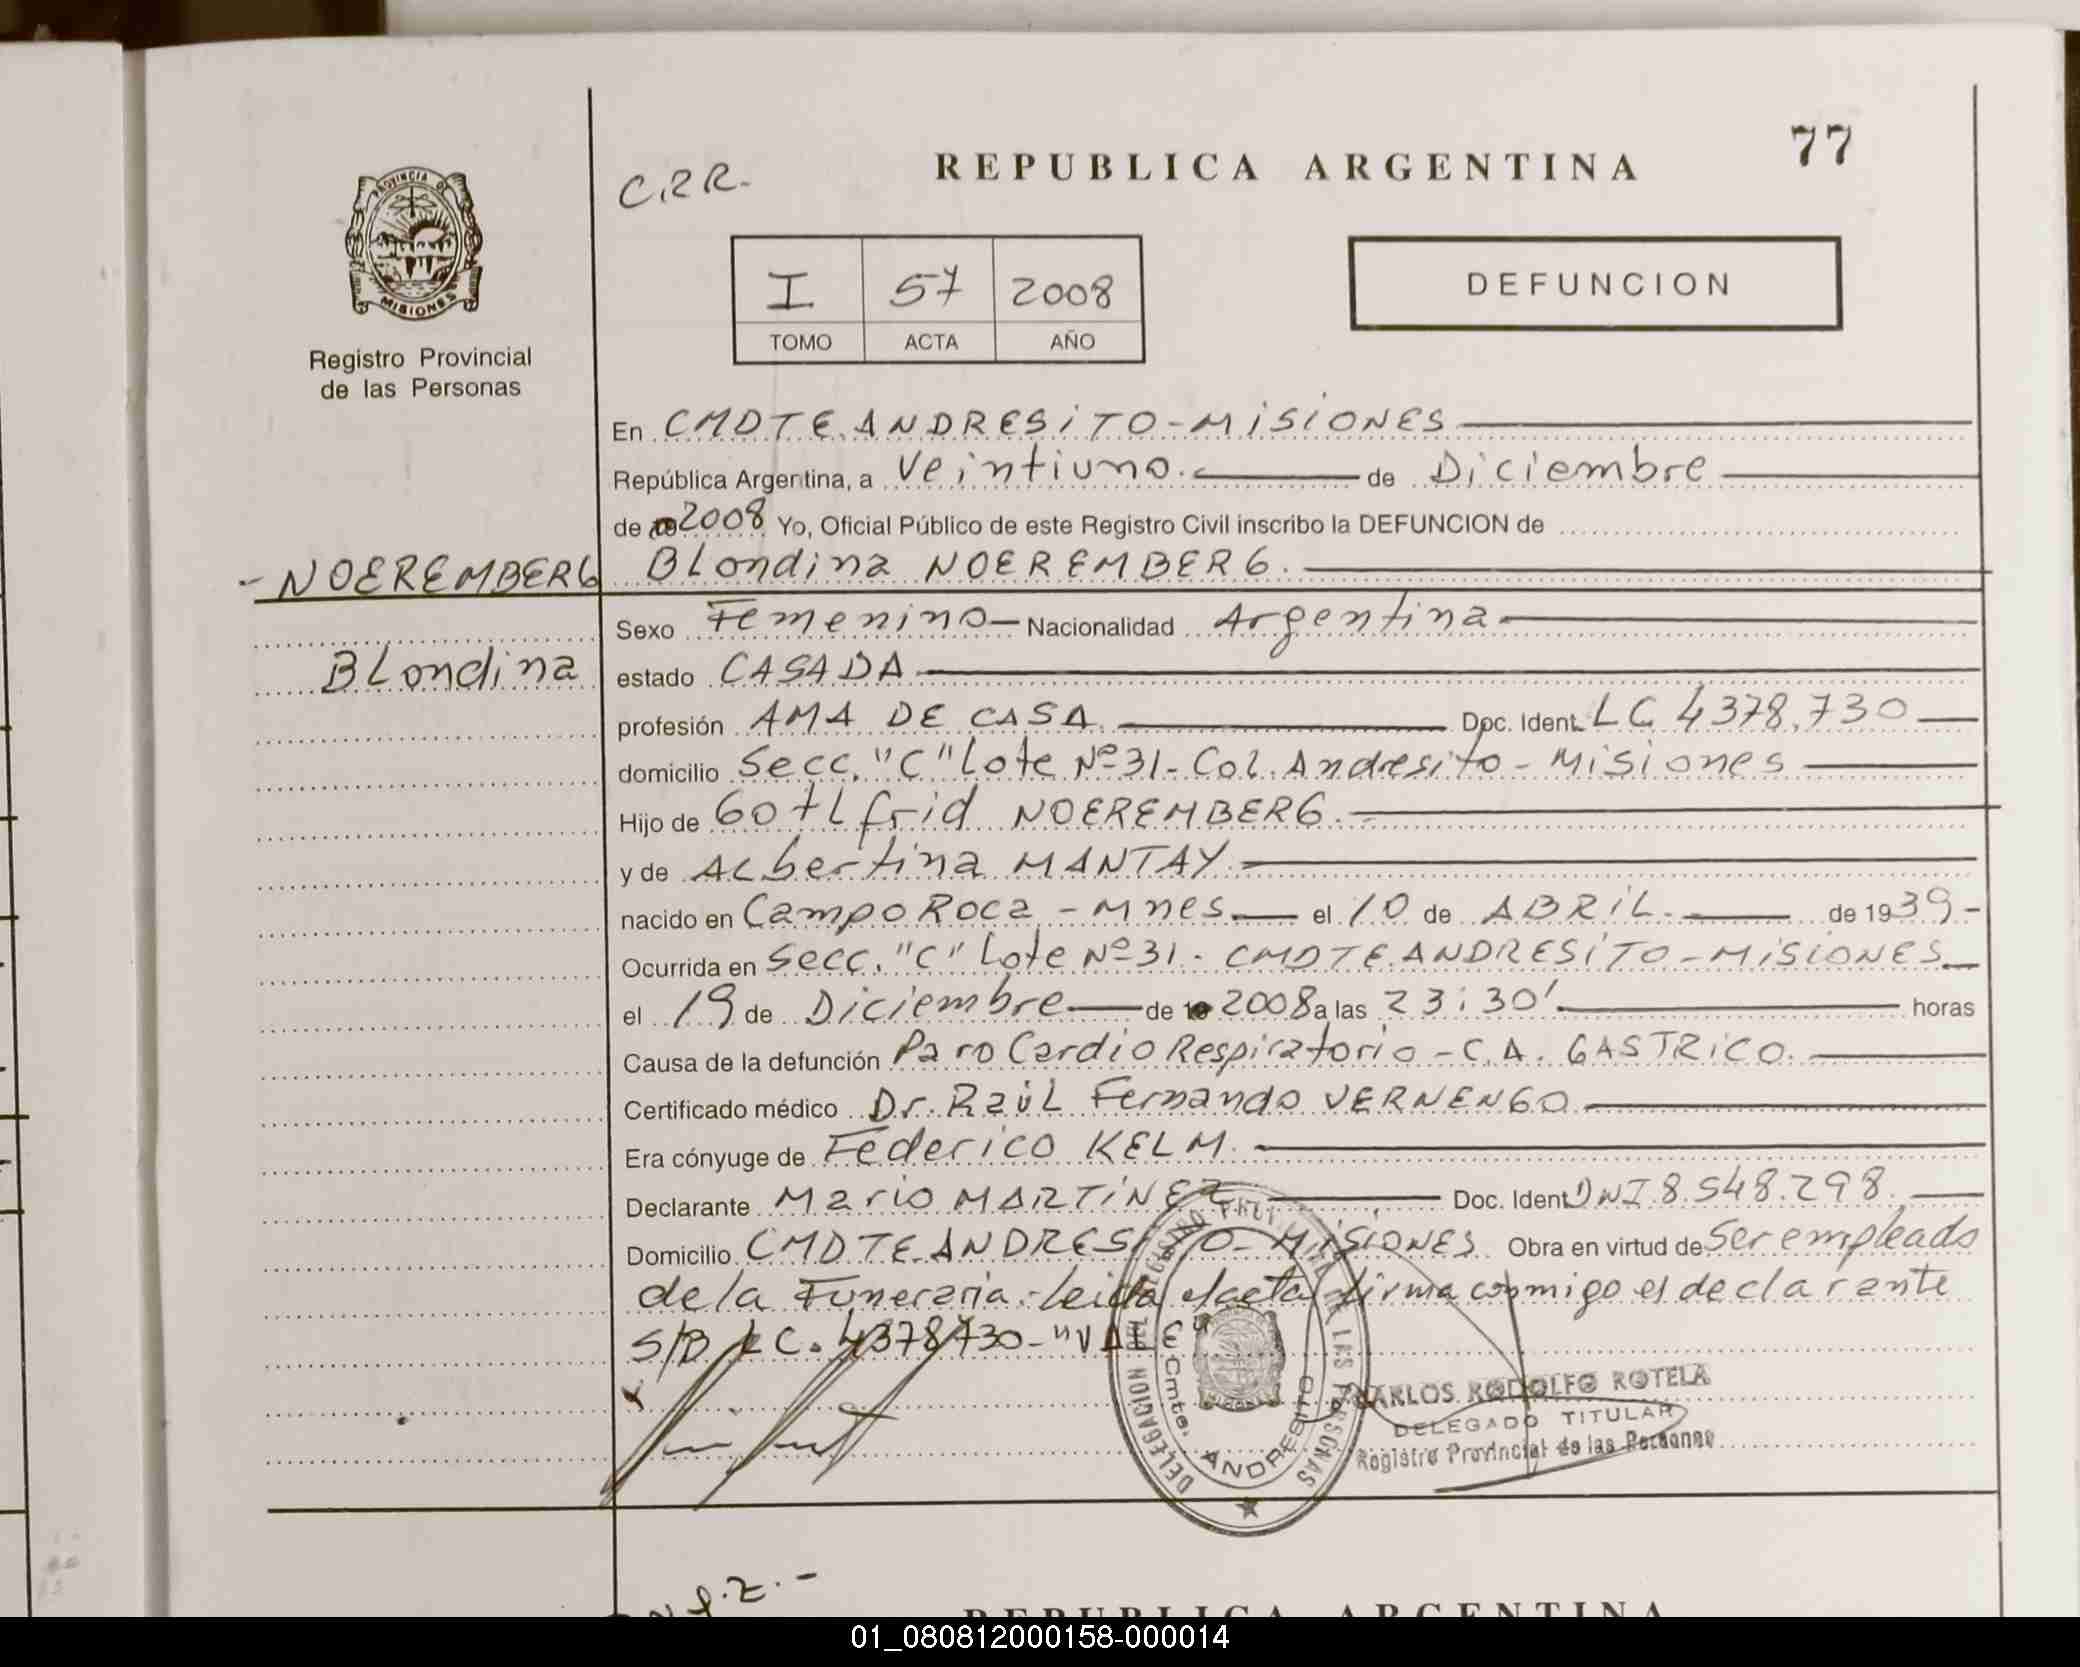 77
REPUBLICA ARGENTINA
C.R.R.-
PROVINCIA DE
MISIONES
Registro Provincial
de las Personas
I 57 2008
TOMO ACTA AÑO
DEFUNCION
En CMDTE ANDRESITO - MISIONES
República Argentina, a Veintiuno. de Diciembre
de 2008 Yo, Oficial Público de este Registro Civil inscribo la DEFUNCION de
- NOEREMBERG Blondina NOEREMBERG.
Sexo Femenino - Nacionalidad Argentina
Blondina
estado CASADA
profesión AMA DE CASA. Doc. Ident. LC 4378.730
domicilio Secc. "C" Lote Nº 31 - Col. Andresito - Misiones
Hijo de Gotlfrid NOEREMBERG.
y de Albertina MANTAY.
nacido en Campo Roca - Mnes el 10 de ABRIL. de 1939 -
Ocurrida en Secc. "C" Lote Nº 31 - CMDTE ANDRESITO - MISIONES
el 19 de Diciembre de 2008 a las 23:30' horas
Causa de la defunción Paro Cardio Respiratorio - C.A. GASTRICO.
Certificado médico Dr. Raúl Fernando VERNENGO
Era cónyuge de Federico KELM.
Declarante Mario MARTINEZ Doc. Ident. DNI 8.548.298.
Domicilio CMDTE ANDRESITO - MISIONES Obra en virtud de Ser empleado
de la Funeraria. - Leida el acta firma conmigo el declarante
S/B LC. 4378730 - "VALE"
DELEGACION DEL REGISTRO PROVINCIAL DE LAS PERSONAS
Cmte. ANDRESITO
CARLOS RODOLFO ROTELA
DELEGADO TITULAR
Registro Provincial de las Personas
REPUBLICA ARGENTINA
01_080812000158-000014